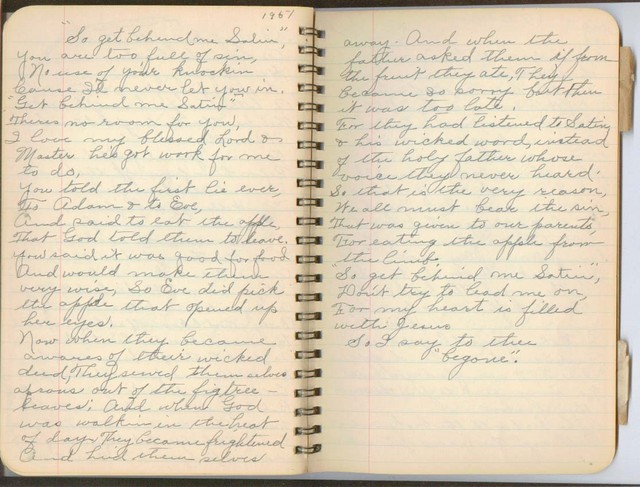 1961
"So get behind me Satin",
You are too full of sin,
No use of your knockin
Cause I'll never let you in.
"Get behind me Satin"
theres no room for you,
I love my blessed Lord &
Master he's got work for me
to do,
You told the first lie ever,
To Adam & to Eve,
And said to eat the apple,
That God told them to leave.
You said it was good for food
And would make them
very wise, So Eve did pick
the apple that opened up
her eyes.
Now when they became
awares of their wicked
deed, They sewed themselves
aprons out of the figtree-
leaves; And when God
was walkin in the heat
of day, They became frightened
And hid them selves
away. And when the
father asked them if from
the fruit they ate, They
Became so sorry but then
it was too late.
For they had listened to Satin
& his wicked word, instead
of the holy father whose
voice they never heard.
So that is the very reason,
We all must bear the sin,
That was given to our parents,
For eating the apple from
the limb.
"So get behind me Satin",
Don't try to lead me on,
For my heart is filled
with Jesus
So I say to thee
"begone".